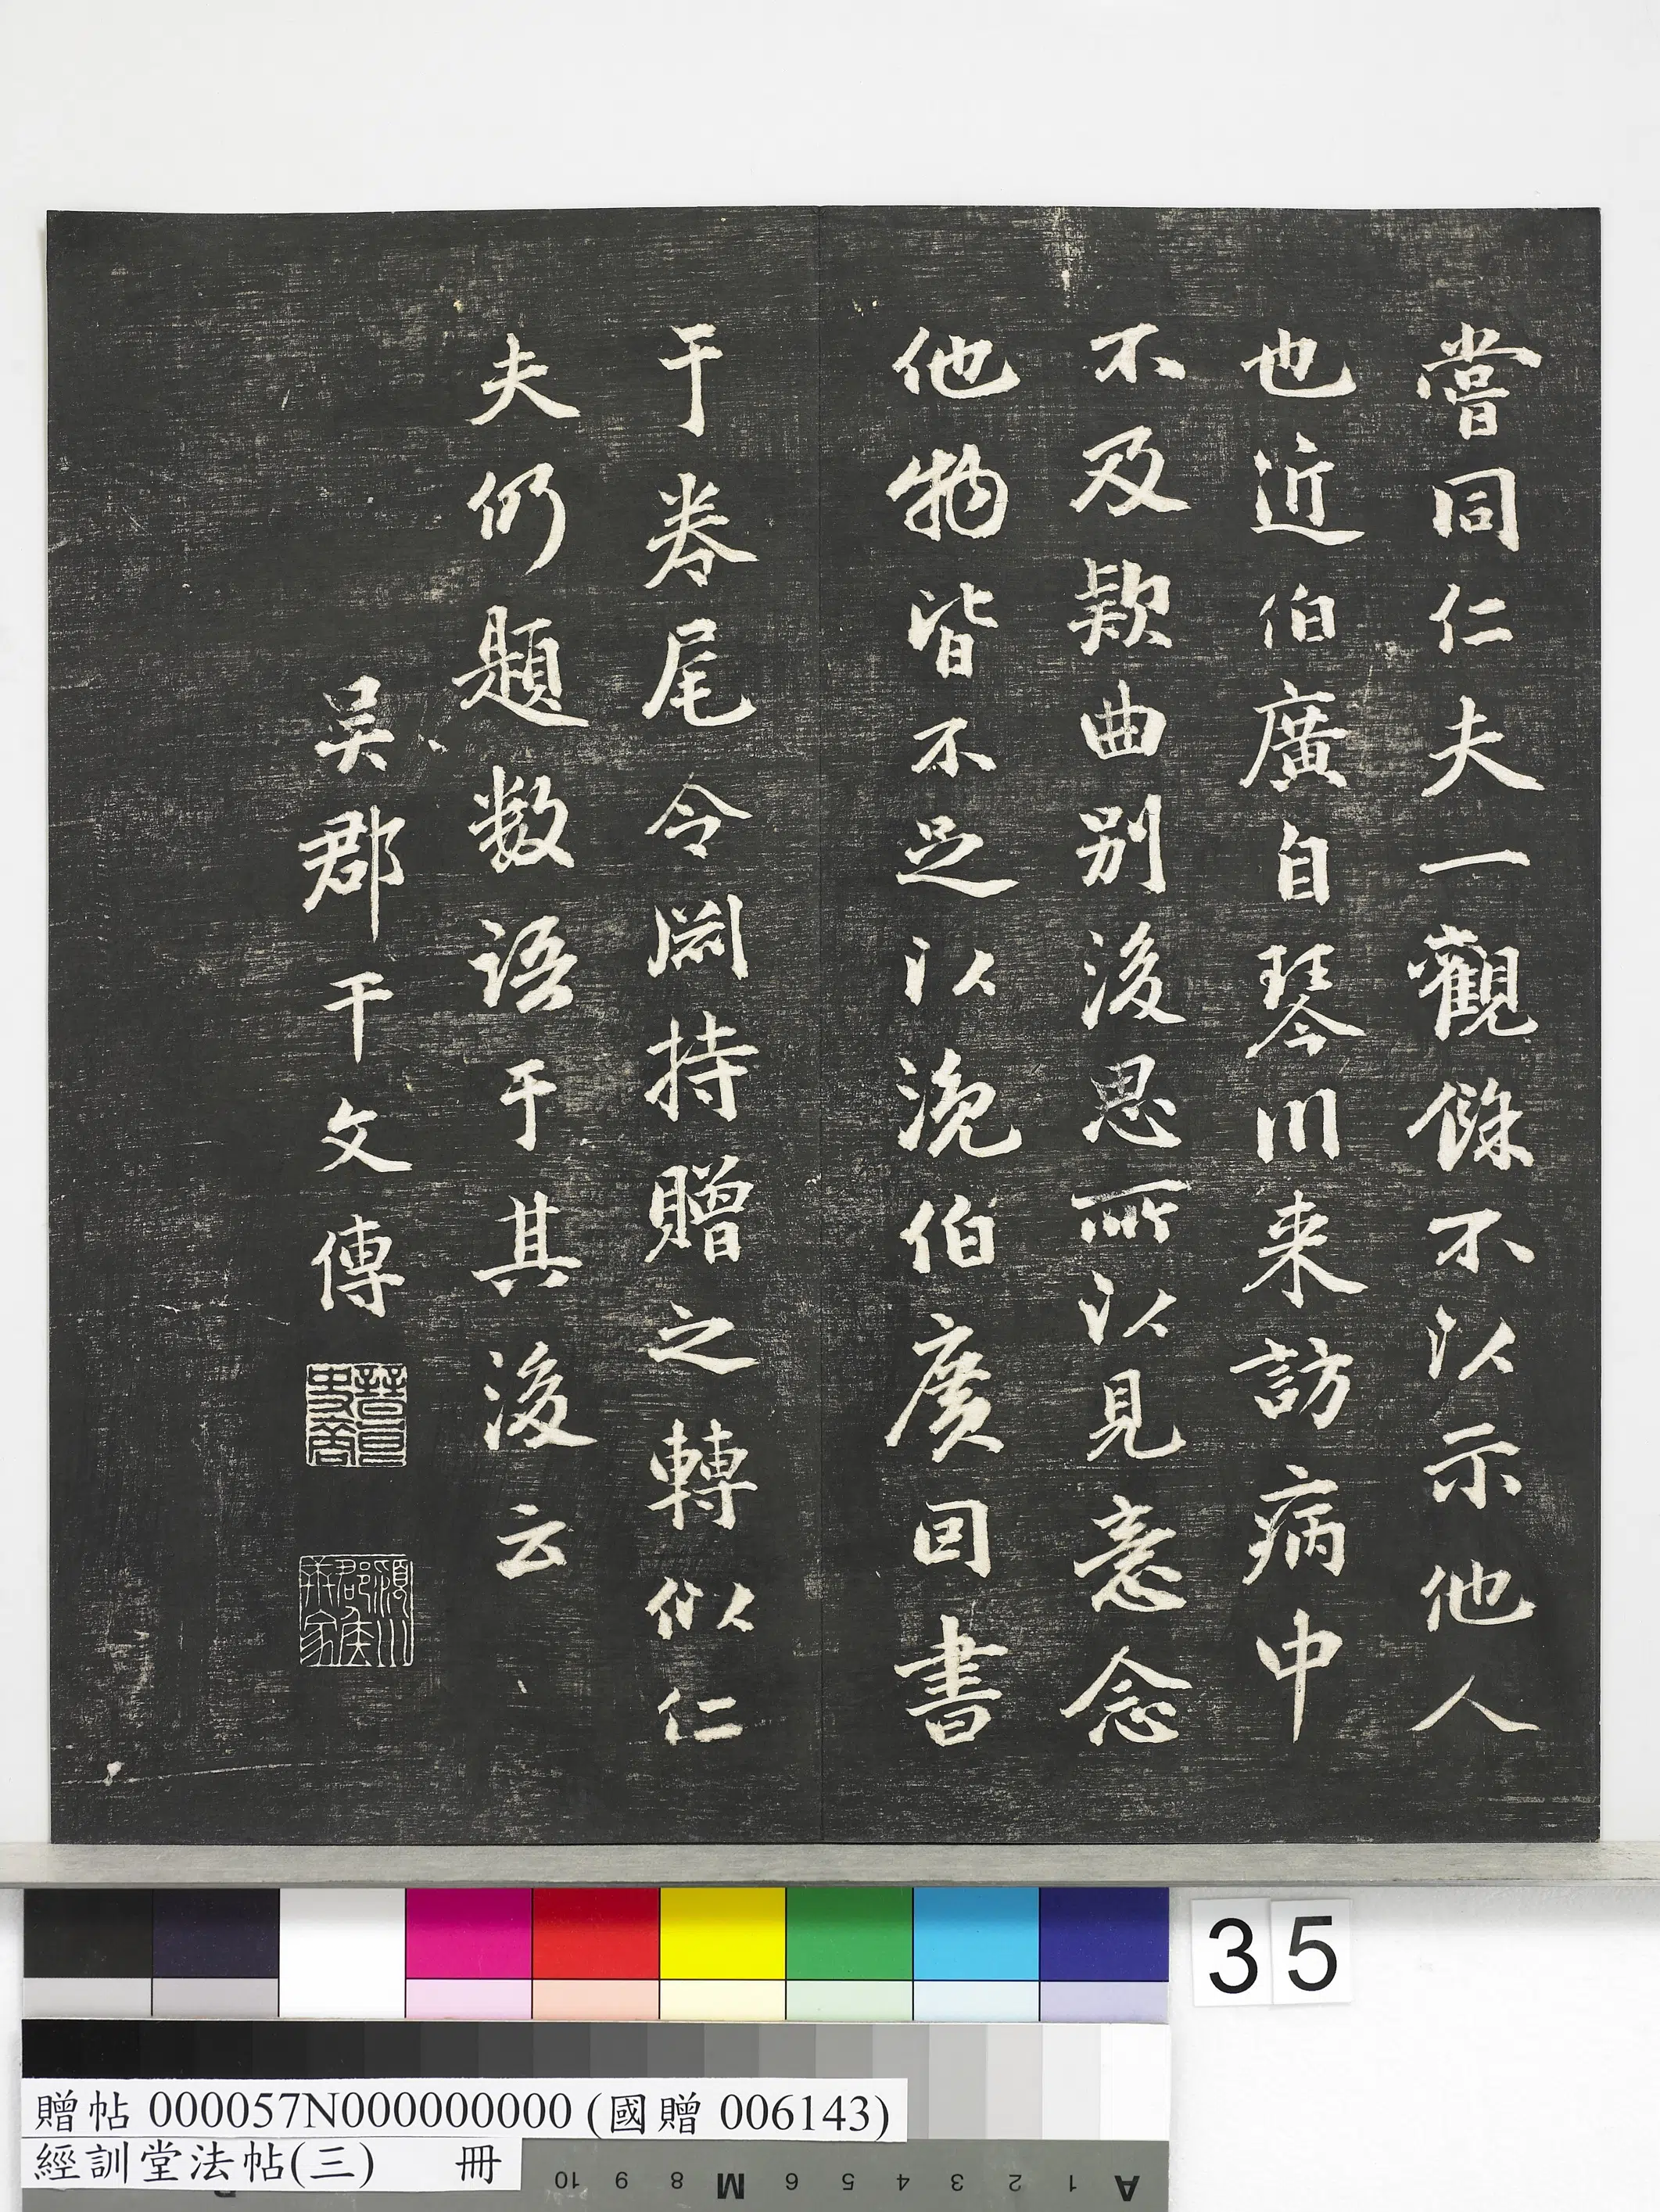 嘗同仁夫一觀餘不以示他人
也近伯廣自琴川来訪病中
不及欵曲别後思所以見意念
他物皆不足以浼伯廣回書
于卷尾令持贈之轉似仁
夫仍題数语于其後云
吴郡干文傳
35
贈帖 000057N000000000 (國贈 006143)
經訓堂法帖(三) 冊
10 9 8 M 6 5 4 3 2 1 A